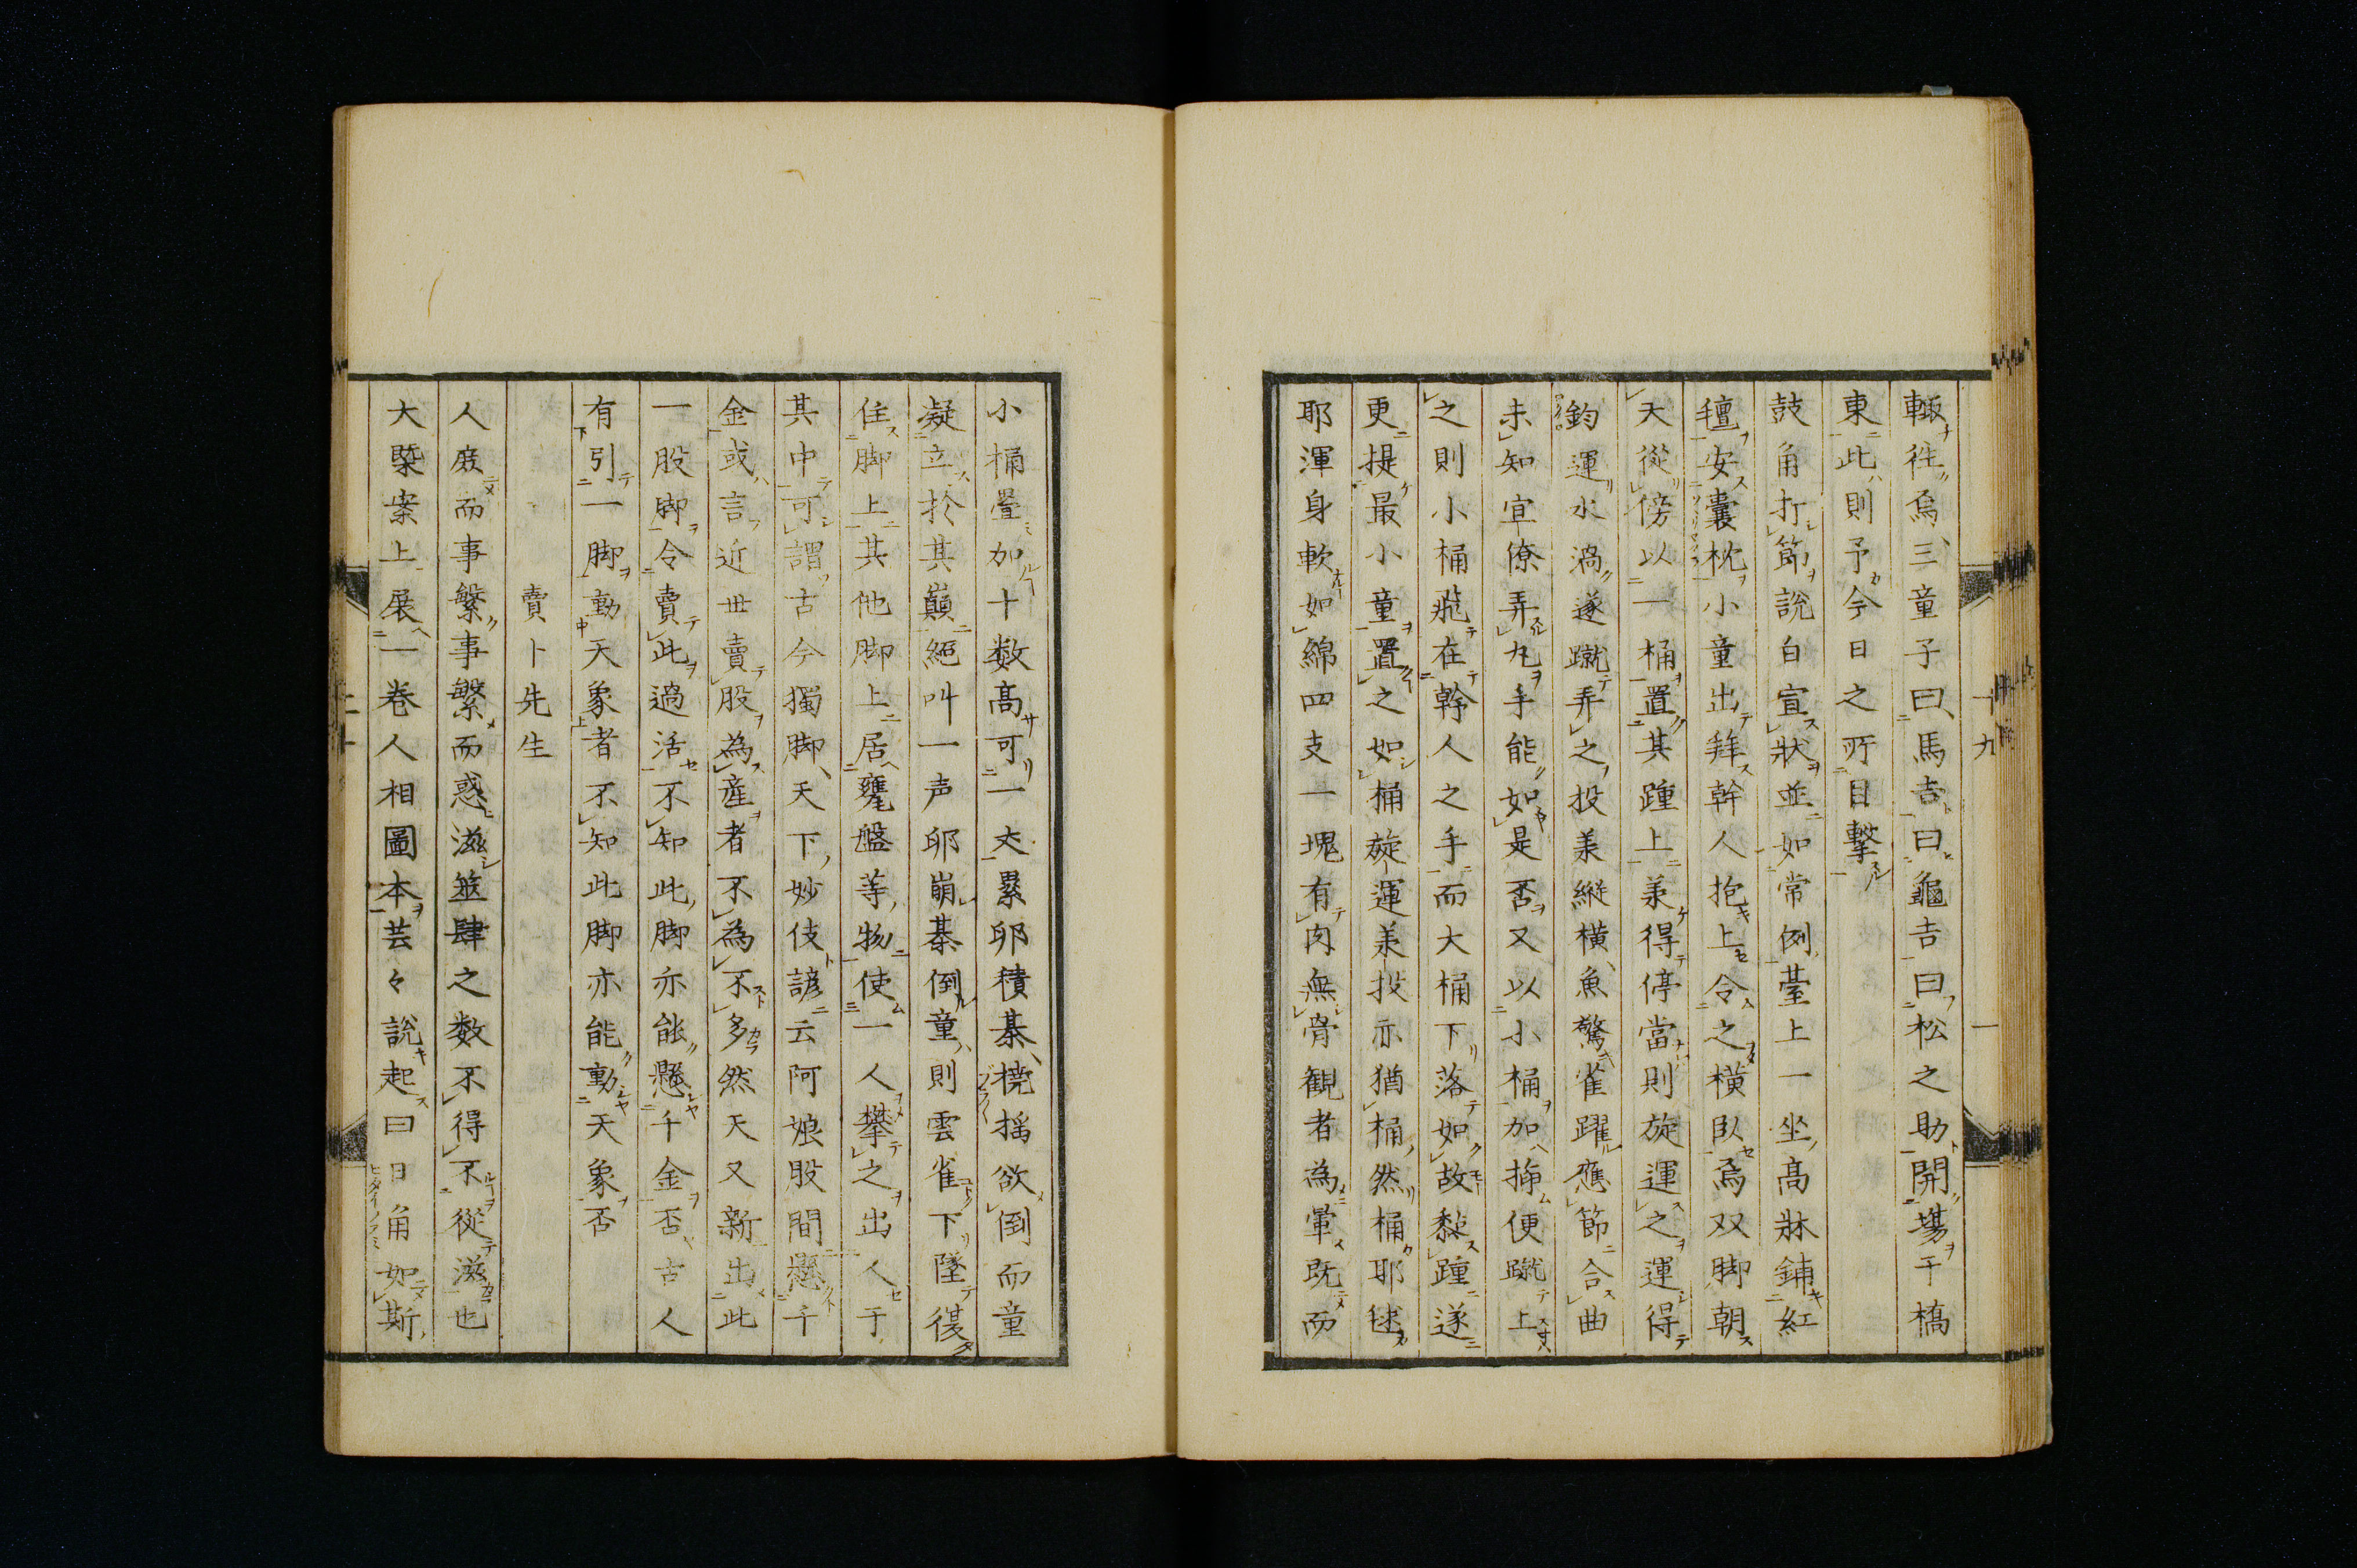 輙往焉三童子曰馬吉曰龜吉曰松之助開場于橋
東此則予今日之所目撃
鼓角打節説白宣狀並如常例臺上一坐高牀鋪紅
氊安囊枕小童出拜幹人抱上令之横臥焉双脚朝
天從傍以一桶置其踵上羕得停當則旋運之運得
鈞運水渦遂蹴弄之投羕縦横魚驚雀躍應節合曲
未知宜僚弄丸手能如是否又以小桶加挿便蹴上
之則小桶飛在幹人之手而大桶下落如故黏踵遂
更提最小童置之如桶旋運羕投亦猶桶然桶耶毬
耶渾身軟如綿四支一塊有肉無骨観者為暈既而
小桶疊加十数高可一丈累卵積棊撓揺欲倒而童
凝立於其巓絕叫一声卵崩棊倒童則雲雀下墜復
住脚上其他脚上居甕盤等物使一人攀之出入于
其中可謂古今獨脚天下妙伎諺云阿娘股間懸千
金或言近世賣股為産者不為不多然天又新出此
一股脚令賣此過活不知此脚亦能懸千金否古人
有引一脚動天象者不知此脚亦能動天象否
賣卜先生
人庶而事繁事繁而惑滋筮肆之数不得不從滋也
大槩案上展一卷人相圖本芸々説起曰日角如斯
十九
二十